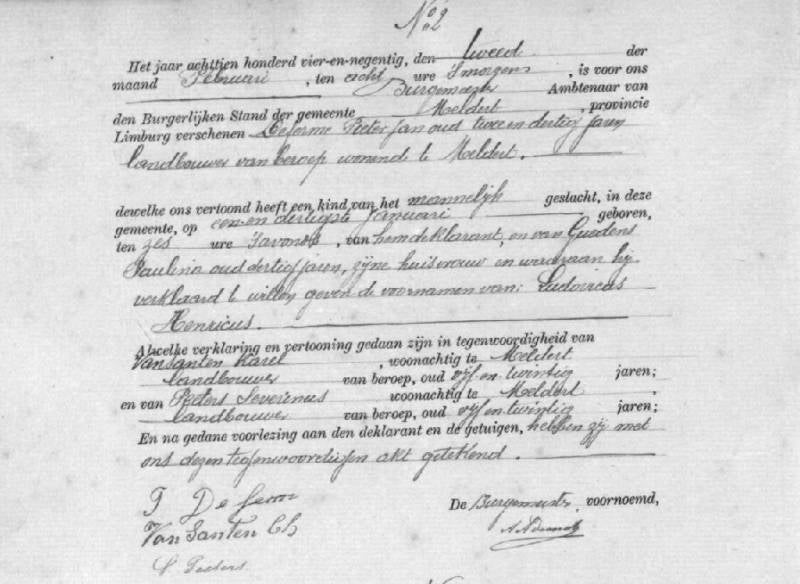 No 2
Het jaar achttien honderd vier-en-negentig, den tweed der
maand Februari, ten acht ure 's morgens, is voor ons
Burgemeester Ambtenaar van
den Burgerlijken Stand der gemeente Meldert, provincie
Limburg verschenen Deferme Pieter Jan oud twee en dertig jaren
landbouwer van beroep wonend te Meldert.
dewelke ons vertoond heeft een kind van het mannelijk geslacht, in deze
gemeente, op een en dertigste Januari geboren,
ten zes ure 's avonds, van hem deklarant, en van Guedens
Paulina oud dertig jaren, zijne huisvrouw en waaraan hij
verklaard te willen geven de voornamen van: Ludovicus
Henricus.
Alwelke verklaring en vertooning gedaan zijn in tegenwoordigheid van
Vansanten Karel, woonachtig te Meldert
landbouwer van beroep, oud vijf en twintig jaren;
en van Peeters Severinus woonachtig te Meldert,
landbouwer van beroep, oud vijf en twintig jaren;
En na gedane voorlezing aan den deklarant en de getuigen, hebben zij met
ons dezen tegenwoordigen akt geteekend.
De Burgemeester, voornoemd,
Van Santen Ch
S. Peeters